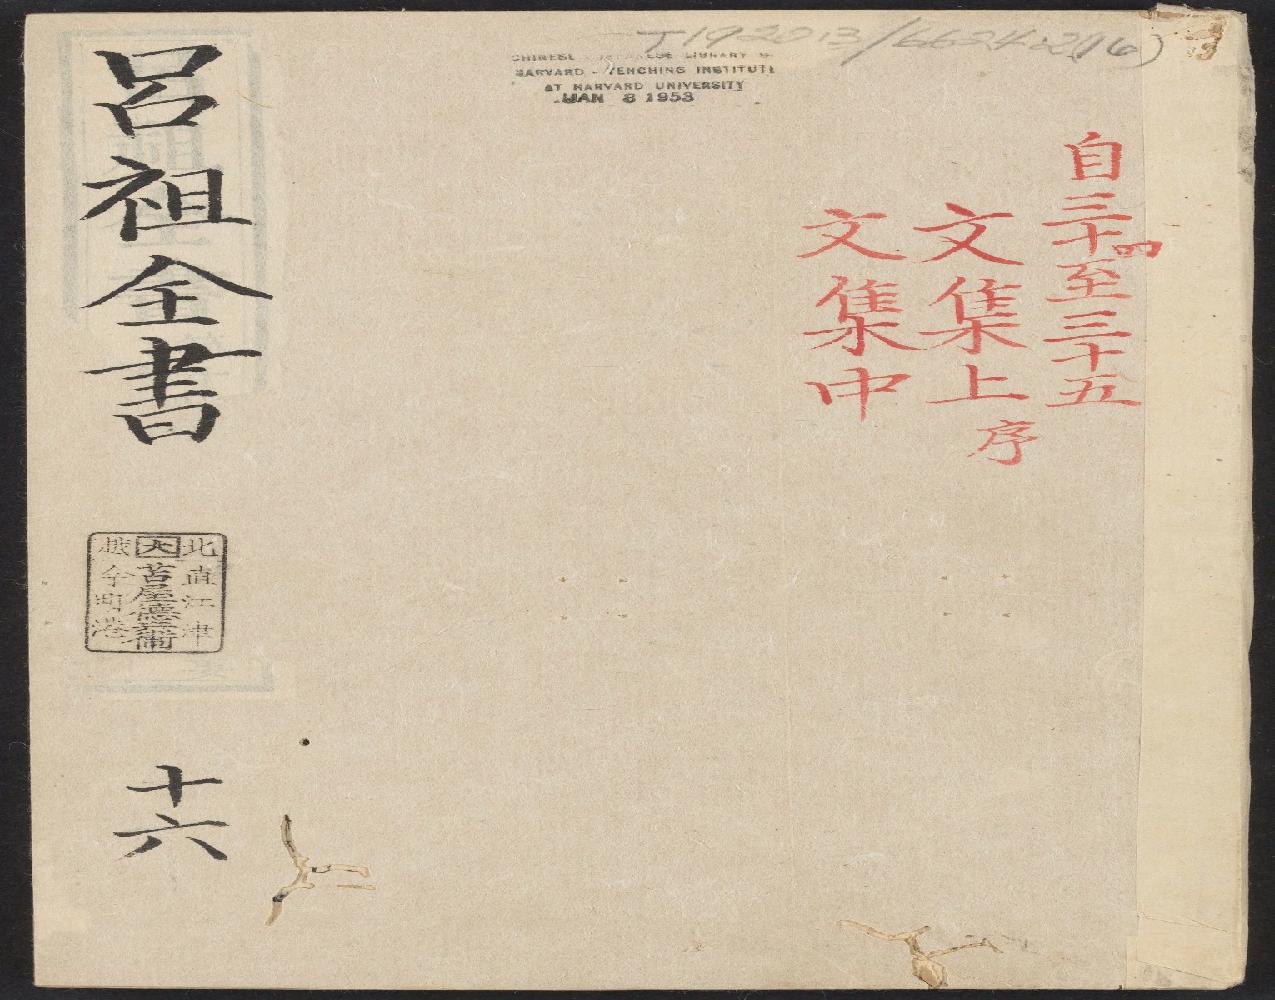 T192013/6624.2(16)
HARVARD-YENCHING INSTITUTE
AT HARVARD UNIVERSITY
JAN 8 1953
自三十四至三十五
文集上序
文集中
呂祖全書
北直江津
大苫屋德兵衛
越今町港
十六